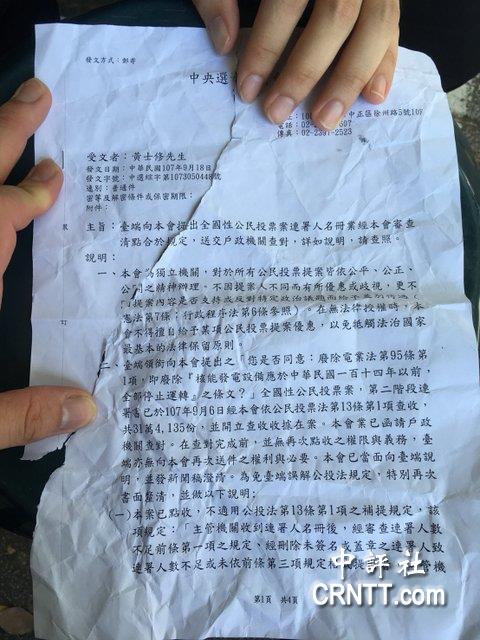 發文方式：郵寄
中央選
中正區徐州路5號10F
電話：02-
傳真：02-2391-2523
受文者：黃士修先生
發文日期：中華民國107年9月18日
發文字號：中選綜字第1073050448號
速別：普通件
密等及解密條件或保密期限：
附件：
主旨：臺端向本會提出全國性公民投票案連署人名冊業經本會審查
清點合於規定，送交戶政機關查對，詳如說明，請查照。
說明：
一、本會為獨立機關，對於所有公民投票提案皆依公平、公正、
公開之精神辦理。不因提案人不同而有所優惠或歧視，更不
憲法第7條；行政程序法第6條參照）。在無法律授權時，本
會不得擅自給予某項公民投票提案優惠，以免牴觸法治國家
最基本的法律保留原則。
二、臺端領銜向本會提出之「您是否同意：廢除電業法第95條第
1項，即廢除『核能發電設備應於中華民國一百十四年以前，
全部停止運轉』之條文？」全國性公民投票案，第二階段連
署書已於107年9月6日經本會依公民投票法第13條第1項查收，
共31萬4,135份，並開立查收收據在案。本會業已函請戶政
機關查對。在查對完成前，並無再次點收之權限與義務，臺
端亦無向本會再次送件之權利與必要。本會已當面向臺端說
明，並發新聞稿澄清。為免臺端誤解公投法規定，特別再次
書面釐清，並做以下說明：
(一)本案已點收，不適用公投法第13條第1項之補提規定，該
項規定：「主管機關收到連署人名冊後，經審查連署人數
不足前條第一項之規定、經刪除未簽名或蓋章之連署人致
連署人數不足或未依前條第三項規定格式提
管機
第1頁 共4頁
中評社
CRNTT.com